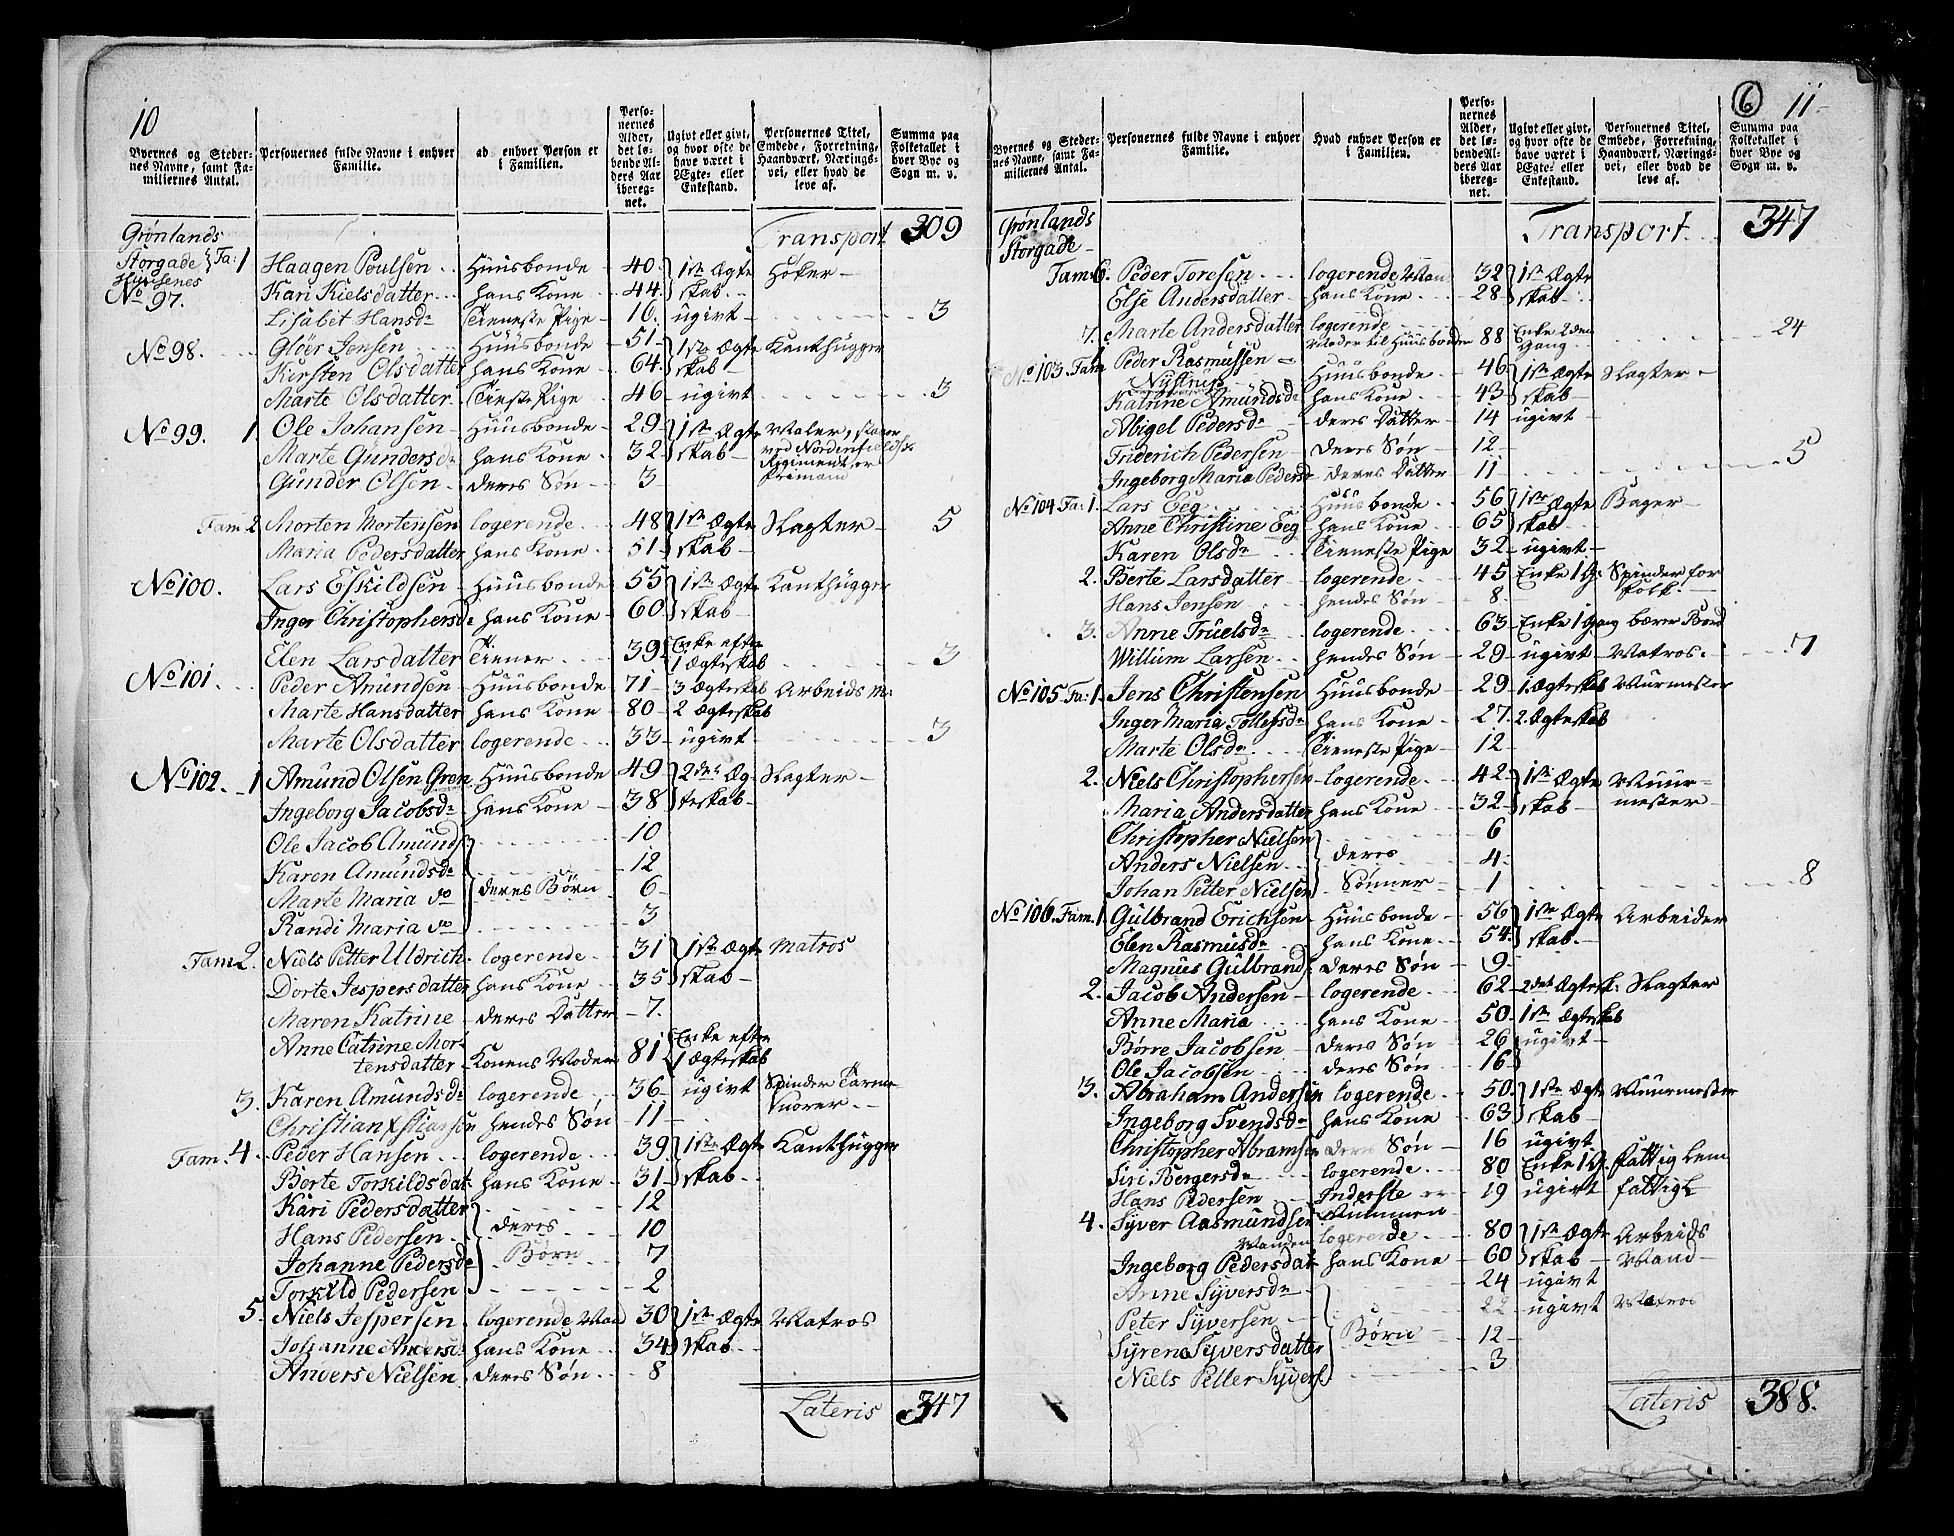 10
Byernes og Stedernes Navne, samt Familiernes Antal.
Personernes fulde Navne i enhver Familie.
ad enhver Person er i Familien.
Personernes Alder, det løbende Alders Aar iberegnet.
Ugivt eller givt, og hvor ofte de have været i Ægte- eller Enkestand.
Personernes Titel, Embede, Forretning, Haandværk, Næringsvei, eller hvad de leve af.
Summa paa Folketallet i hver Bye og Sogn m. v.
Grønlands Transport 309
Storgade Fa: 1 Haagen Poulsen Huusbonde 40 1ste Ægte Høker
No 97. Kari Kielsdatter hans Kone 44 skab
Lisabet Hansdr Tieneste Pige 16 ugivt 3
No 98. Glöer Jensen Huusbonde 51 1ste Ægte Kanthugger
Kirsten Olsdatter hans Kone 64 skab
Marte Olsdatter Tieneste Pige 46 ugivt 3
No 99. 1. Ole Johansen Huusbonde 29 1ste Ægte Maler,
Marte Gundersdr hans Kone 32 skab ved Nordenfieldske
Gunder Olsen deres Søn 3 Regiment er
Fam 2 Morten Mortensen logerende 48 1ste Ægte Slagter 5
Maria Pedersdatter hans Kone 51 skab
No 100. Lars Eskildsen Huusbonde 55 1ste Ægte Kanthugger
Inger Christophersd: hans Kone 60 skab
Elen Larsdatter Tiener 39 Enke efter 1 Ægteskab 3
No 101. Peder Amundsen Huusbonde 71 3 Ægteskab Arbeids M:
Marte Hansdatter hans Kone 80 2 Ægteskab
Marte Olsdatter logerende 33 ugivt 3
No 102. 1 Amund Olsen Gren Huusbonde 49 2det Æg- Slagter
Ingeborg Jacobsdr hans Kone 38 teskab
Ole Jacob Amunds 10
Karen Amundsdr 12
Marte Maria do deres Børn 6
Randi Maria do 3
Fam 2. Niels Petter Uldrich logerende 31 1ste Ægte Matros
Dorte Jespersdatter hans Kone 35 skab
Maren Katrine deres Datter 7.
Anne Catrine Mor-
tensdatter Konens Moder 81 Enke efter 1 Ægteskab
3. Karen Amundsdr logerende 36 ugivt Spinder
Christian hendes Søn 11
Fam. 4. Peder Hansen logerende 39 1ste Ægte Kanthugger
Berte Torkildsdat hans Kone 31 skab
Kari Pedersdatter 12
Hans Pedersen deres 10
Johanne Pedersdr Børn 7
Torkild Pedersen 2
5. Niels Jespersen logerende Mand 30 1ste Ægte Matros
Johanne Andersd: hans Kone 34 skab
Anders Nielsen deres Søn 8
Lateris 347
6 11
Byernes og Stedernes Navne, samt Familiernes Antal.
Personernes fulde Navne i enhver Familie.
Hvad enhver Person er i Familien.
Personernes Alder, det løbende Alders Aar iberegnet.
Ugivt eller givt, og hvor ofte de have været i Ægte- eller Enkestand.
Personernes Titel, Embede, Forretning, Haandværk, Næringsvei, eller hvad de leve af.
Summa paa Folketallet i hver Bye og Sogn m. v.
Grønlands Transport 347
Storgade
Fam 6. Peder Toresen logerende Mand 32 1ste Ægte
Else Andersdatter hans Kone 28 skab
7. Marte Andersdatter logerende Moder til Huusbonden 88 Enke 2den Gang 24
No 103 Fam Peder Rasmussen Nystrup Huusbonde 46 1ste Ægte Slagter
Katrine Amundsdr hans Kone 43 skab
Abigel Pedersdr deres Datter 14 ugivt
Friderich Pedersen deres Søn 12
Ingeborg Maria Pedersdr deres Datter 11 5
No 104 Fa: 1. Lars Eeg Huusbonde 56 1ste Ægte Bager
Anne Christine Eeg hans Kone 65 skab
Karen Olsdr Tieneste Pige 32 ugivt
2. Berte Larsdatter logerende 45 Enke 1 G: Spinder for Folk.
Hans Jensen hendes Søn 8
3. Anne Truelsdr logerende 63 Enke 1 Gang bærer Bord
Willum Larsen hendes Søn 29 ugivt Matros 7
No 105 Fa: 1. Jens Christensen Huusbonde 29 1 Ægteskab Murmester
Inger Maria Tollefsdr hans Kone 27 2 Ægteskab
Marte Olsdr Tieneste Pige 12
2. Niels Christophersen logerende 42 1ste Ægte Muur-
Maria Andersdatter hans Kone 32 skab mester
Christopher Nielsen 6
Anders Nielsen deres 4
Johan Petter Nielsen Sønner 1 8
No 106 Fam. 1 Gulbrand Erichsen Huusbonde 56 1ste Ægte Arbeider
Elen Rasmusdr hans Kone 54 skab
Magnus Gulbrands: deres Søn 9
2. Jacob Andersen logerende 62 2det Ægtesk: Slagter
Anne Maria hans Kone 50 1ste Ægteskab
Børre Jacobsen deres Søn 26 ugivt
Ole Jacobsen deres Søn 16
3. Abraham Andersen logerende 50 1ste Ægte Muurmester
Ingeborg Svendsdr hans Kone 63 skab
Christopher Abramsen deres Søn 16 ugivt
Siri Bergersdr logerende 80 Enke 1 G. fattig Lem
Hans Pedersen Inderste er 19 ugivt fattigl
4. Syver Aasmundsen logerende 80 1ste Ægte Arbeids
Ingeborg Pedersdat hans Kone 60 skab Mand
Anne Syversdr 24 ugivt
Peter Syversen 22 ugivt Matros
Syrene Syversdatter Børn 12
Niels Petter Syvers 3
Lateris 388.